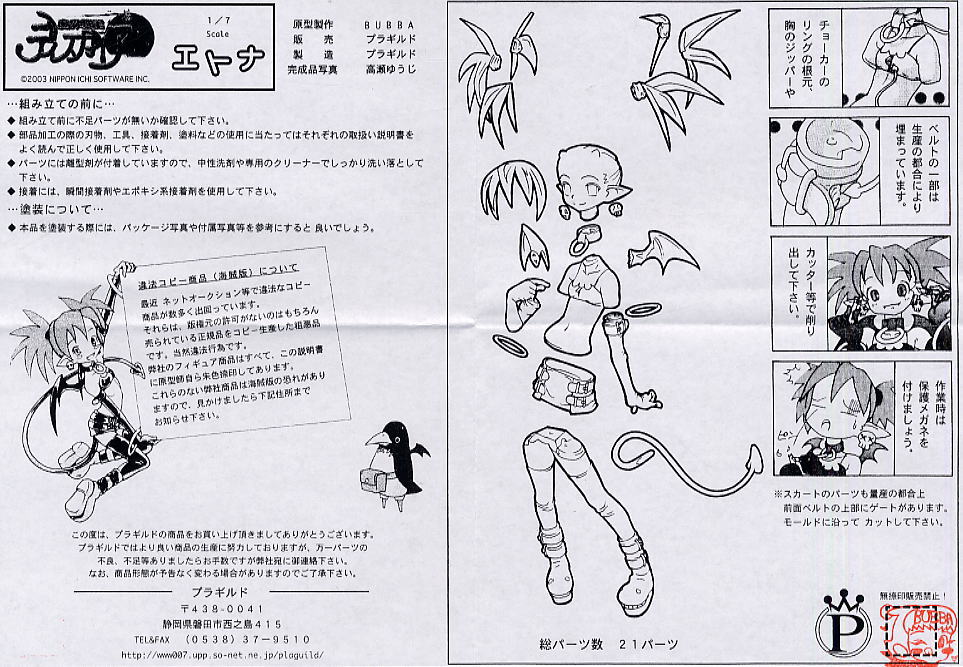 ディスガイア
©2003 NIPPON ICHI SOFTWARE INC.
1/7
Scale
エトナ
原型製作 BUBBA
販売 プラギルド
製造 プラギルド
完成品写真 高瀬ゆうじ
…組み立ての前に…
◆ 組み立て前に不足パーツが無いか確認して下さい。
◆ 部品加工の際の刃物、工具、接着剤、塗料などの使用に当たってはそれぞれの取扱い説明書を
よく読んで正しく使用して下さい。
◆ パーツには離型剤が付着していますので、中性洗剤や専用のクリーナーでしっかり洗い落として
下さい。
◆ 接着には、瞬間接着剤やエポキシ系接着剤を使用して下さい。
…塗装について…
◆ 本品を塗装する際には、パッケージ写真や付属写真等を参考にすると良いでしょう。
違法コピー商品(海賊版)について
最近 ネットオークション等で違法なコピー
商品が数多く出回っています。
それらは、版権元の許可がないのはもちろん
売られている正規品をコピー生産した粗悪品
です。当然違法行為です。
弊社のフィギュア商品はすべて、この説明書
に原型師自ら朱色捺印してあります。
これらのない弊社商品は海賊版の恐れがあり
ますので、見かけましたら下記住所まで
お知らせ下さい。
この度は、プラギルドの商品をお買い上げ頂きましてありがとうございます。
プラギルドではより良い商品の生産に努力しておりますが、万一パーツの
不良、不足等ありましたらお手数ですが弊社宛に御連絡下さい。
なお、商品形態が予告なく変わる場合がありますのでご了承下さい。
プラギルド
〒438-0041
静岡県磐田市西之島415
TEL&FAX (0538)37-9510
http://www007.upp.so-net.ne.jp/plaguild/
総パーツ数 21パーツ
チョーカーの
リングの根元、
胸のジッパーや
ベルトの一部は
生産の都合により
埋まっています。
カッター等で削り
出して下さい。
作業時は
保護メガネを
付けましょう。
ピーン
※スカートのパーツも量産の都合上
前面ベルトの上部にゲートがあります。
モールドに沿って カットして下さい。
P
無捺印販売禁止!
BUBBA